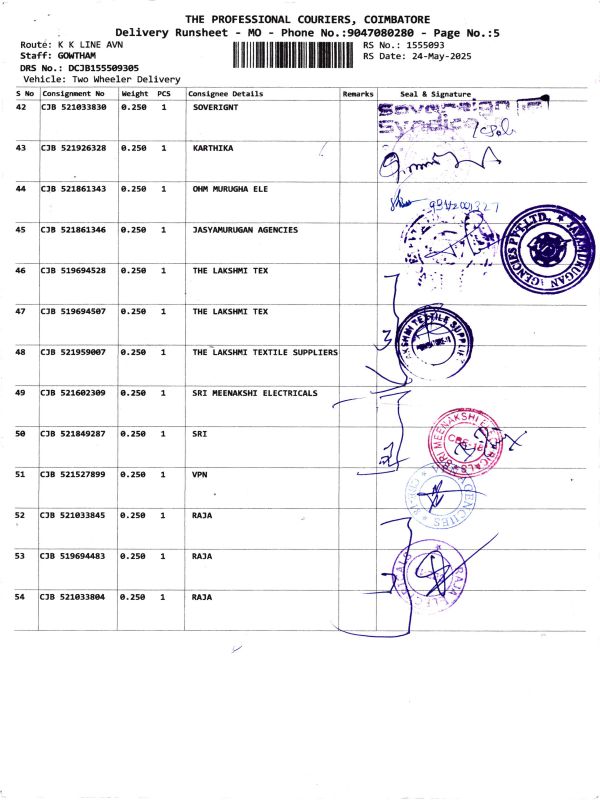 THE PROFESSIONAL COURIERS, COIMBATORE
Delivery Runsheet - MO - Phone No.:9047080280 - Page No.:5
Route: K K LINE AVN
RS No.: 1555093
Staff: GOWTHAM
RS Date: 24-May-2025
DRS No.: DCJB155509305
Vehicle: Two Wheeler Delivery
S No Consignment No Weight PCS Consignee Details Remarks Seal & Signature
42 CJB 521033830 0.250 1 SOVERIGNT
43 CJB 521926328 0.250 1 KARTHIKA
44 CJB 521861343 0.250 1 OHM MURUGHA ELE
45 CJB 521861346 0.250 1 JASYAMURUGAN AGENCIES
JAYAMURUGAN AGENCIES PVT.LTD.
46 CJB 519694528 0.250 1 THE LAKSHMI TEX
47 CJB 519694507 0.250 1 THE LAKSHMI TEX
3
48 CJB 521959007 0.250 1 THE LAKSHMI TEXTILE SUPPLIERS
49 CJB 521602309 0.250 1 SRI MEENAKSHI ELECTRICALS
50 CJB 521849287 0.250 1 SRI
SRI MEENAKSHI
51 CJB 521527899 0.250 1 VPN
AGENCIES
52 CJB 521033845 0.250 1 RAJA
53 CJB 519694483 0.250 1 RAJA
RAJA
54 CJB 521033804 0.250 1 RAJA